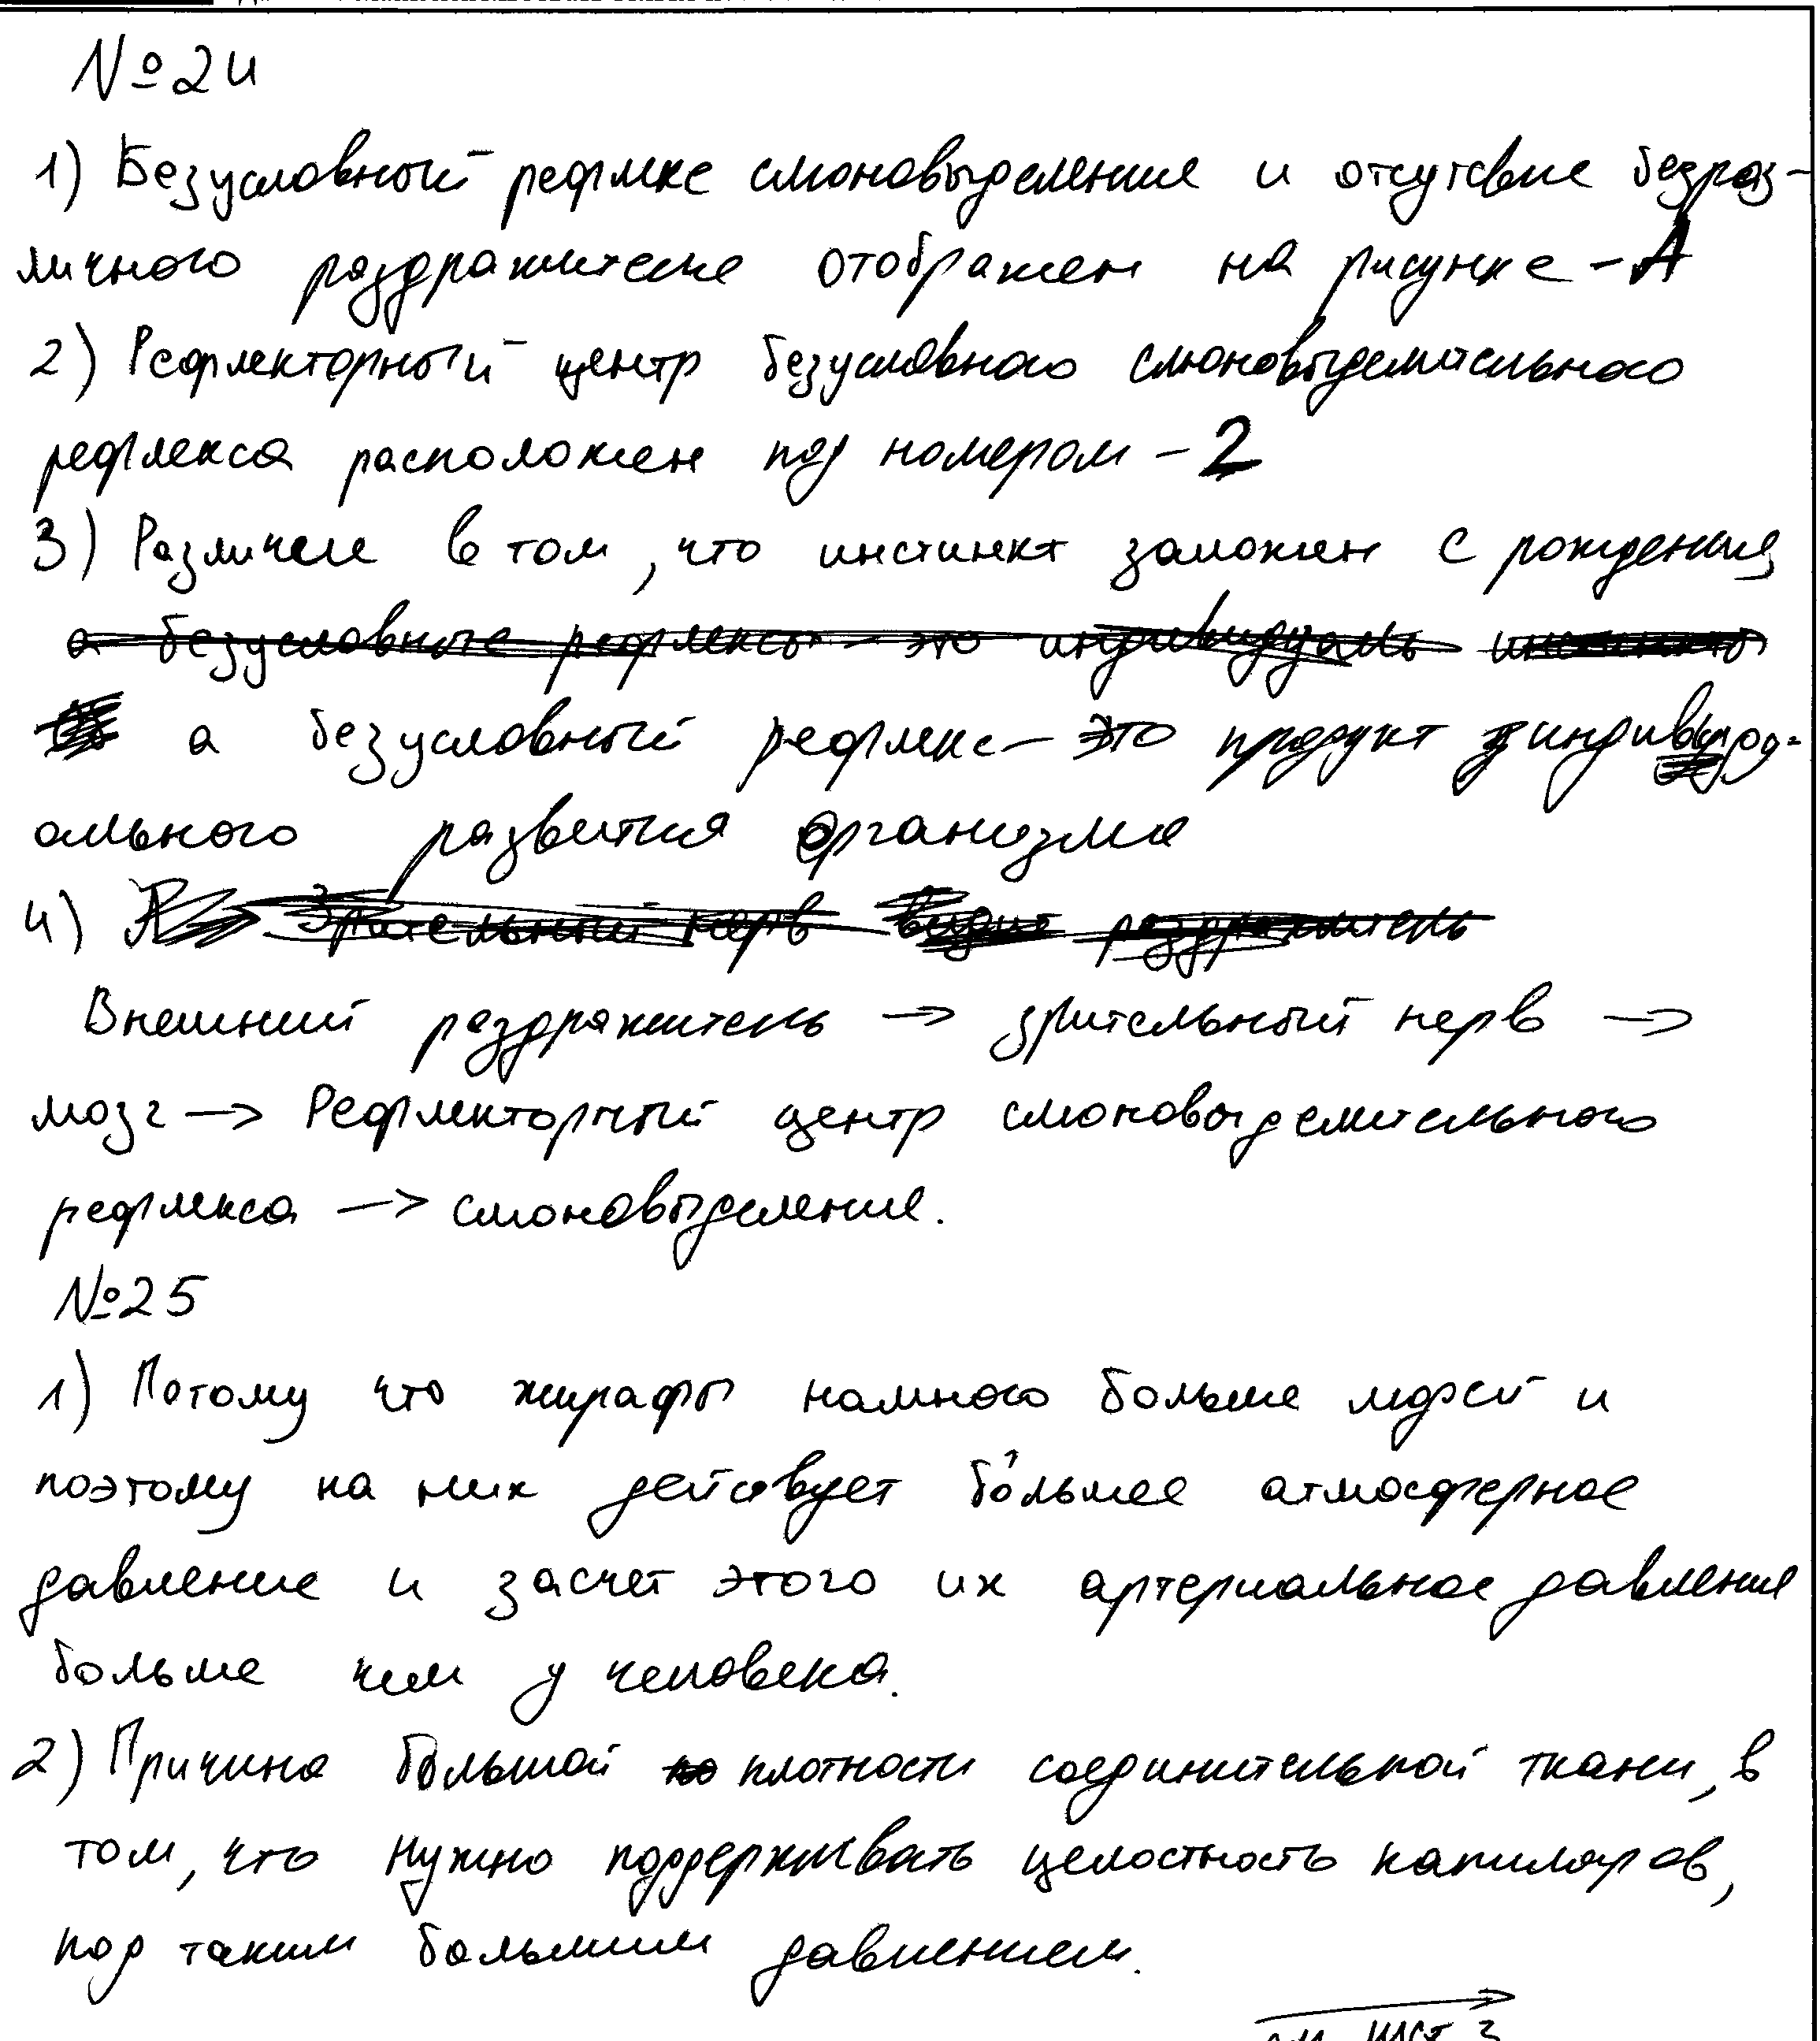 №24
1) Безусловный рефлекс слюновыделение и отсутсвие безраз-
личного раздражителя отображен на рисунке - А
2) Рефлекторный центр безусловного слюновыделительного
рефлекса расположен под номером - 2
3) Различие в том, что инстинкт заложен с рождения
а безусловные рефлексы - это индивидуаль
а безусловный рефлекс - это продукт индивиду-
ального развития организма
4) Зрительный нерв видит раздражитель
Внешний раздражитель → зрительный нерв →
мозг → Рефлекторный центр слюновыделительного
рефлекса → слюновыделение.
№25
1) Потому что жирафы намного больше людей и
поэтому на них действует бо́льшее атмосферное
давление и засчет этого их артериальное давление
больше чем у человека.
2) Причина большой плотности соединительной ткани, в
том, что нужно поддерживать целостность капиляров,
под таким большим давлением.
см. лист 3